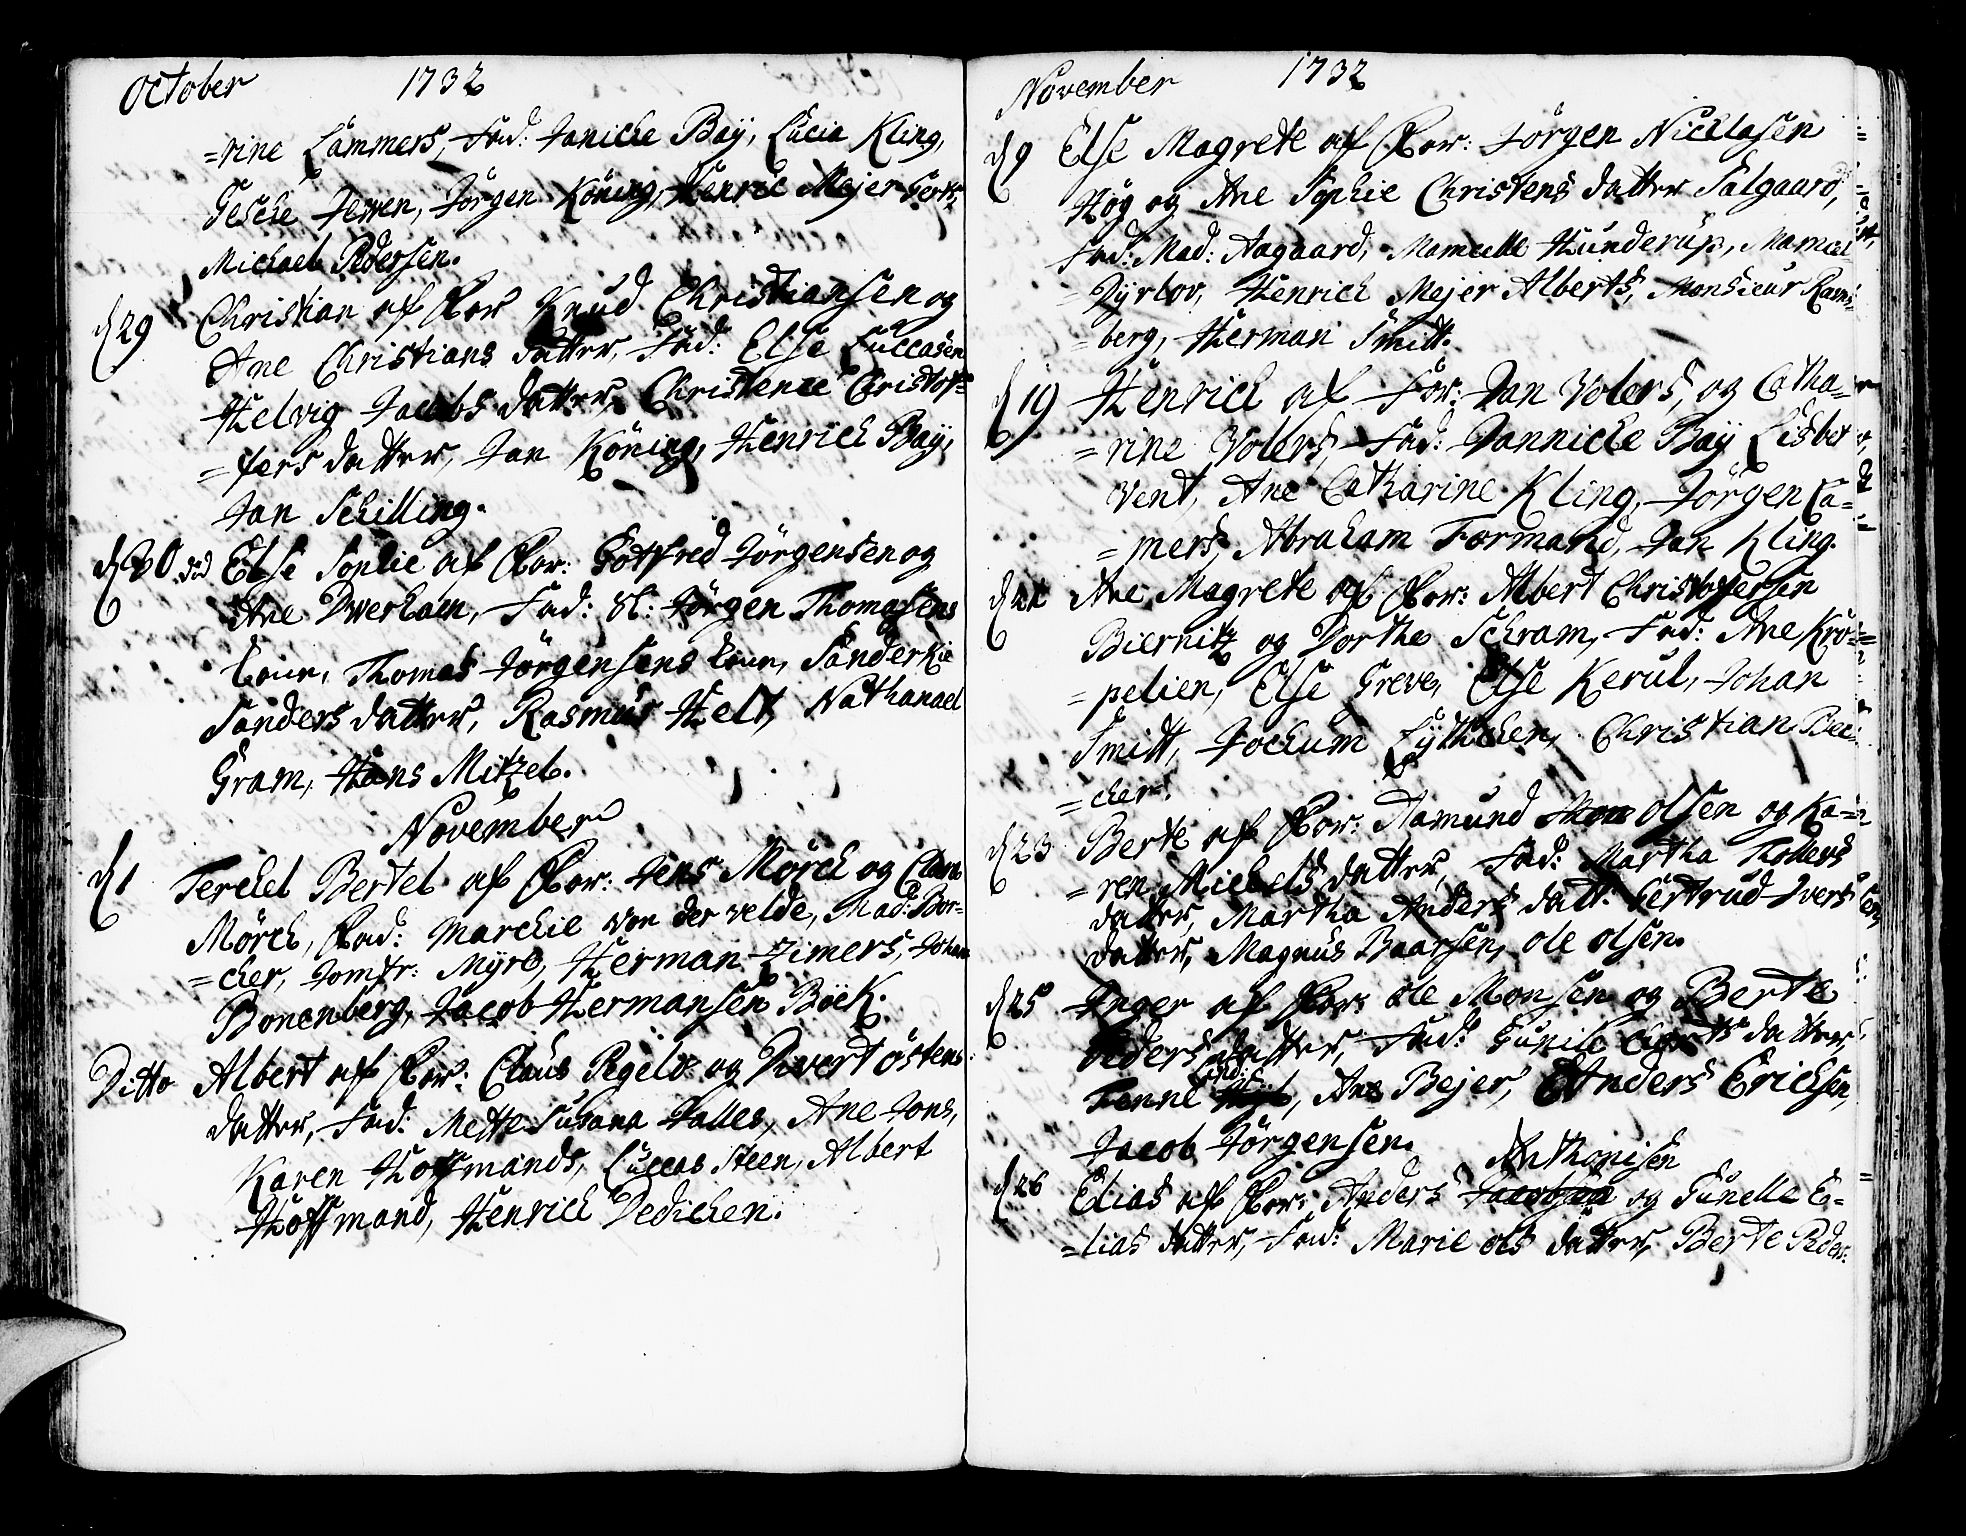 October 1732
=rine Lammers, Fad: Janiche Baÿ, Lucia Kling,
Gesche Jewen, Jörgen Köning, Henric Mejer Gerts,
Michael Pedersen.
d 29 Christian af For Knud Christiansen og
Ane Christians datter, Fad: Else Luccasen
Helvig Jacobs datter, Christence Christof=
=fers datter, Jan Köning, Henrich Baÿ,
Jan Schilling.
d 30 Else Sophie af For: Gotfred Jörgensen og
Ane Dverham, Fad: Sl: Jörgen Thomasens
, Thomas Jörgensens , Sanderkie
Sanders datter, Rasmus Helt, Nathanael
Gram, Hans Mitzel.
November
d 1 Terchel Bertel af For: Jens Mörch og
Mörch, Fad: Marchie von der velde, Mad: Bor=
=cher, Jomfr: Myre, Herman Zimers, Johan
Bonenberg, Jacob Hermansen Böck.
Ditto Albert af For: Claus Segelv og Divert östens
datter, Fad: Mette Susana Falles, Ane Jons,
Karen Hoffmands, Luccas Steen, Albert
Hoffmand, Henrich Dedichen.
November 1732
d 9 Else Magrete af For: Jörgen Nicklasen
Hög og Ane Sophie Christens datter Salgaard,
Fad: Mad: Aagaard, Mamcelle Hunderup, Mamcel
Dyrlov, Henrich Mejer Alberts, Monsieur Rams=
=berg, Herman Smitt.
d 19 Henrich af For: Jan Volers, og Catha=
=rine Volers, Fad: Jannicke Baÿ Lisbet
Vent, Ane Catharine Kling, Jörgen La=
=mers, Abraham Formand, Jan Kling.
d 21 Ane Magrete af For: Albert Christofersen
Biernitz og Dorthe Schram, Fad: Ane Krö=
=pelien, Else Greve, Else Kerul, Johan
Smitt, Jochum Lÿthchen, Christian Bec=
=cher.
d 23 Berte af For: Aamund Olsen og Ka=
=ren Michels datter, Fad: Martha Tollers
datter, Martha Anders datt: Gertrud Ivers
datter, Magnus Baarsen, ole olsen.
d 25 Inger af For: ole Monsen og Berte
Peders datter, Fad: Gunild datter
Tennt, Ane Bejer, Anders Erichsen,
Jacob Jörgensen.
Anthonisen
d 26 Elias af For: Anders Jacobsen og Gunelle E=
=lias datter, Fad: Marie ols datter, Berte Peders: